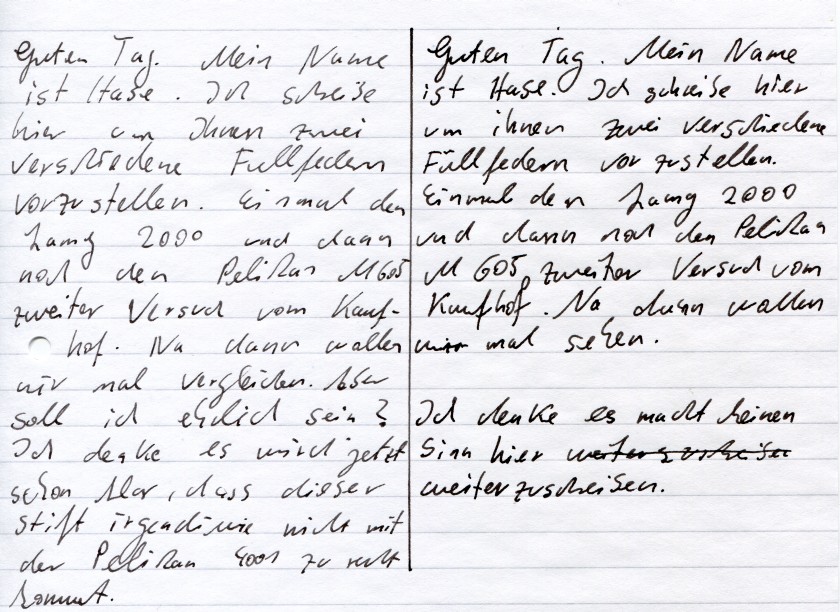 Guten Tag. Mein Name
ist Hase. Ich schreibe
hier um Ihnen zwei
verschiedene Füllfedern
vorzustellen. Einmal den
Lamy 2000 und dann
noch den Pelikan M605
zweiter Versuch vom Kauf-
hof. Na dann wollen
wir mal vergleichen. Aber
soll ich ehrlich sein?
Ich denke es wird jetzt
schon klar, dass dieser
Stift irgendwie nicht mit
der Pelikan 4001 zu recht
kommt.
Guten Tag. Mein Name
ist Hase. Ich schreibe hier
um ihnen zwei verschiedene
Füllfedern vor zustellen.
Einmal den Lamy 2000
und dann noch den Pelikan
M 605, zweiter Versuch vom
Kaufhof. Na, dann wollen
wir mal sehen.
Ich denke es macht keinen
Sinn hier weiterzuschreiben
weiterzuschreiben.